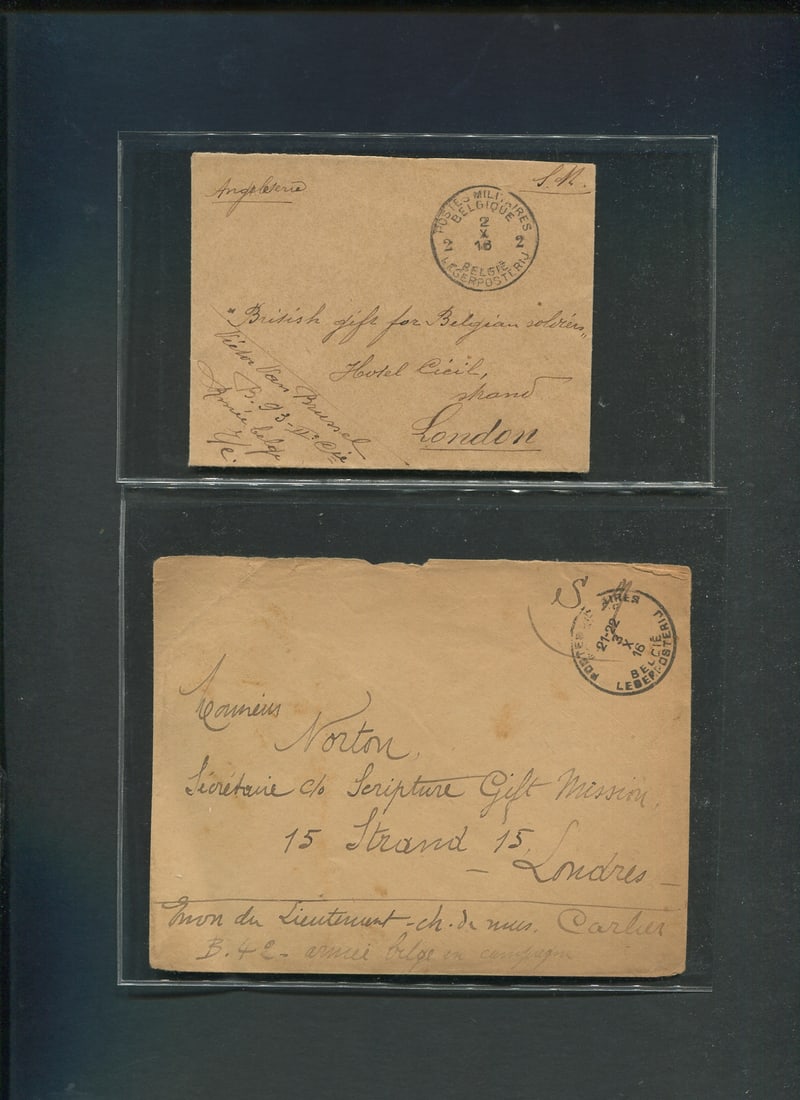 Angleterre
S.M.
POSTES MILITAIRES
BELGIQUE
2
X
16
2 2
BELGIË
LEGERPOSTERIJ
"British gift for Belgian soldiers"
Hotel Cécil,
strand
London
Victor Van Brussel
B. 93 - IIe Cie
Armée belge
Monsieur
Norton,
Sécrétaire c/o Scripture Gift Mission,
15 Strand 15,
- Londres -
S M
POSTES
AIRES
21-22
3 X
16
BELGIË
LEGERPOSTERIJ
Envoi du Lieutenant - ch. de mus. Carlier
B. 4e - armée belge en campagne